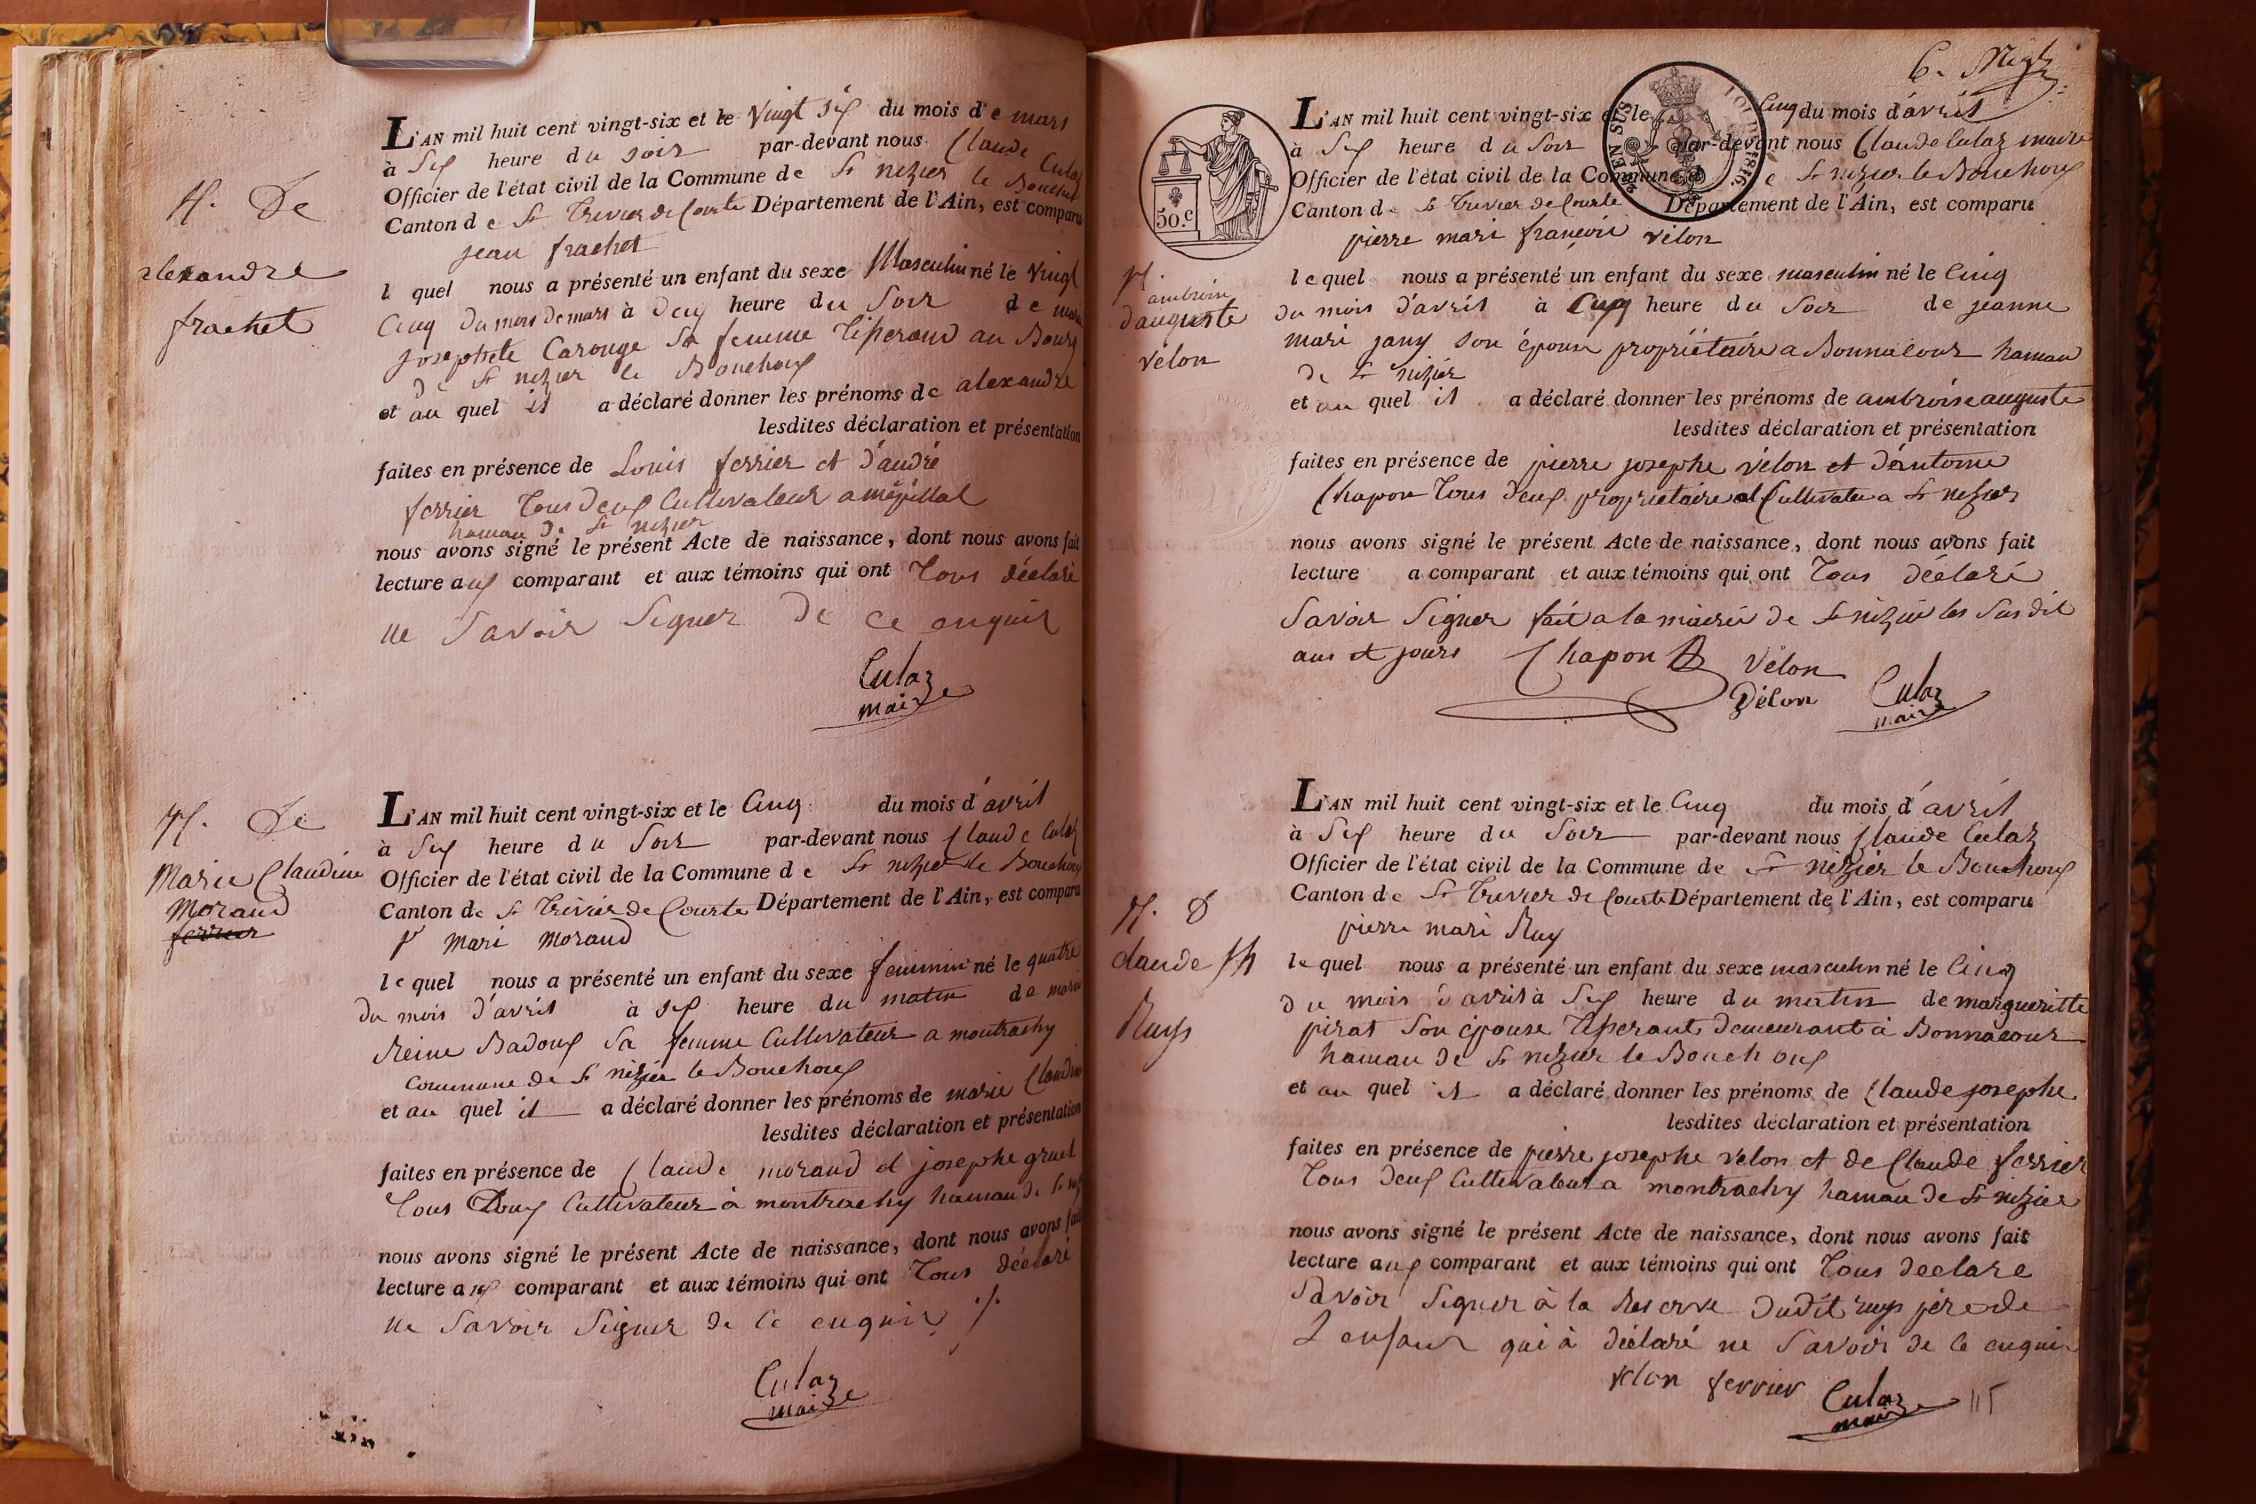 N. De
alexandre
frachet
L'AN mil huit cent vingt-six et le vingt six du mois de mars
à Six heure du soir par-devant nous Claude Culaz
Officier de l'état civil de la Commune de St nizier le Bouchoux
Canton de St Trivier de Courte Département de l'Ain, est comparu
jean frachet
l quel nous a présenté un enfant du sexe Masculin né le vingt
Cinq du mois de mars à deux heure du Soir de marie
josephete Carouge Sa femme Tisserand au Bourg
de St nizier le Bouchoux
et au quel il a déclaré donner les prénoms de alexandre
lesdites déclaration et présentation
faites en présence de Louis ferrier et d'andré
ferrier Tous deux Cultivateur a
hamau de St nizier
nous avons signé le présent Acte de naissance, dont nous avons fait
lecture aux comparant et aux témoins qui ont Tous déclaré
ne Savoir Signer de ce enquis
Culaz
maire
N. De
Marie Claudine
Morand
ferrier
L'AN mil huit cent vingt-six et le Cinq du mois d'avril
à Six heure du Soir par-devant nous Claude Culaz
Officier de l'état civil de la Commune de St nizier le Bouchoux
Canton de St Trivier de Courte Département de l'Ain, est comparu
pr mari morand
lequel nous a présenté un enfant du sexe feminin né le quatre
du mois d'avril à six heure du matin de marie
Reine Badoux Sa femme Cultivateur a montrachy
Commune de St nizier le Bouchoux
et au quel il a déclaré donner les prénoms de marie Claudine
lesdites déclaration et présentation
faites en présence de Claude morand et josephe gruel
Tous Doux Cultivateur à montrachy hamau de St niz
nous avons signé le présent Acte de naissance, dont nous avons fait
lecture aux comparant et aux témoins qui ont Tous déclaré
ne Savoir Signer de Ce enquis ./.
Culaz
maire
6.
50.c
N.
ambroise
d'auguste
velon
L'AN mil huit cent vingt-six et le Cinq du mois d'avril
à Six heure du Soir par-devant nous Claude Culaz maire
Officier de l'état civil de la Commune de St nizier le Bouchoux
Canton de St Trivier de Courte Département de l'Ain, est comparu
pierre mari françois vélon
lequel nous a présenté un enfant du sexe masculin né le Cinq
du mois d'avril à Cinq heure du Soir de jeanne
mari jany son épouse propriétaire a Bonnacour hamau
de St nizier
et au quel il a déclaré donner les prénoms de ambroise auguste
lesdites déclaration et présentation
faites en présence de pierre josephe vélon et d'antoine
Chapon Tous deux propriétaire et Cultivateu a St nizier
nous avons signé le présent Acte de naissance, dont nous avons fait
lecture a comparant et aux témoins qui ont Tous déclaré
Savoir Signer fait a la mairie de St nizier les Sus dit
ans et jours Chapon Vélon
Vélon Culaz
maire
N. D
claude jh
Ruys
L'AN mil huit cent vingt-six et le Cinq du mois d'avril
à Six heure du Soir par-devant nous Claude Culaz
Officier de l'état civil de la Commune de St nizier le Bouchoux
Canton de St Trivier de Courte Département de l'Ain, est comparu
pierre mari Ruy
lequel nous a présenté un enfant du sexe masculin né le Cinq
du mois d'avril à Six heure du matin de margueritte
pirat Son épouse Tisserant demeurant à Bonnacour
hamau de St nizier le Bouchoux
et au quel il a déclaré donner les prénoms de Claude josephe
lesdites déclaration et présentation
faites en présence de pierre josephe velon et de Claude ferrier
Tous deux Cultivateur a montrachy hamau de St nizier
nous avons signé le présent Acte de naissance, dont nous avons fait
lecture aux comparant et aux témoins qui ont Tous declare
Savoir Signer à la Reserve dudit ruys père de
L enfant qui à déclaré ne Savoir de Ce enquis
velon ferrier Culaz
maire